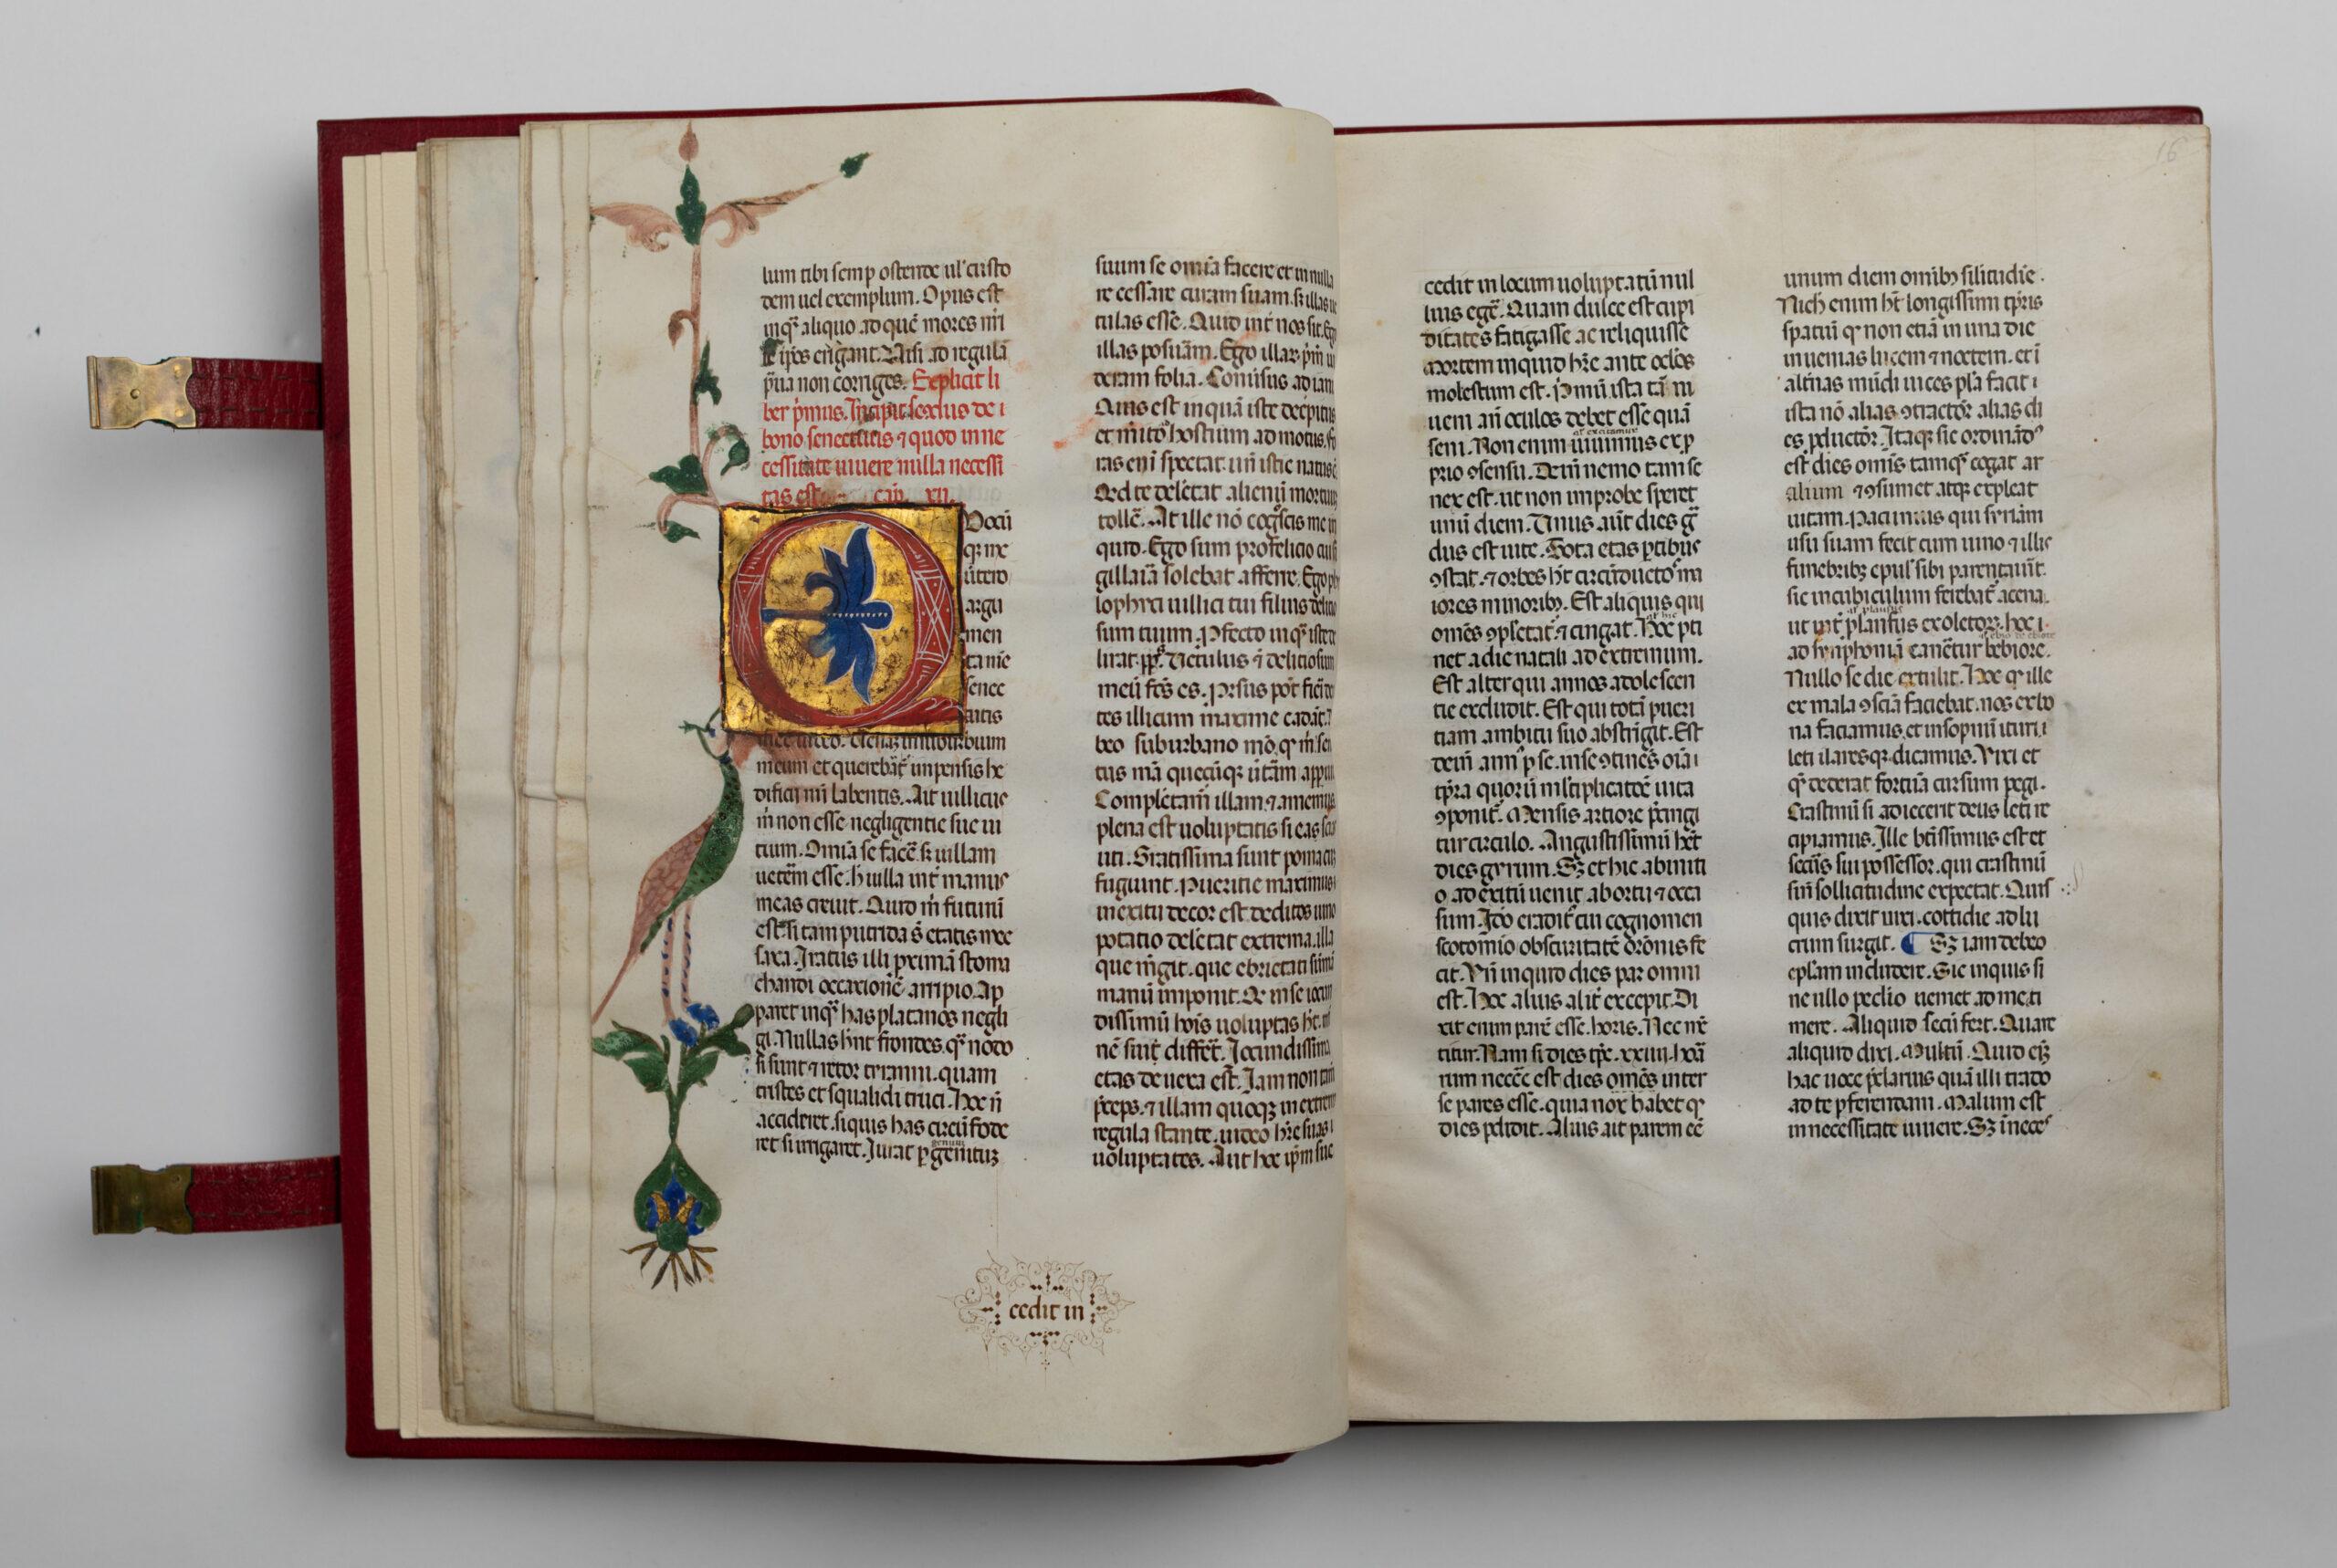 lum tibi semp ostende ul' custo
dem uel exemplum. Opus est
inqͣ aliquo ad quē mores nr̄i
se ip̄os erigant. Nisi ad regulā
pͣua non corriges. Explicit li
ber pͥmus. Incipit sextus de i
bono senectutis ⁊ quod in ne
cessitate uiuere nulla necessi
tas est cap. xii.
Qvocū
qꝫ me
ūtero
argu
men
ta mīe
senec
tutis
mee uideo. Uenaꝫ in suburbium
meum et querebar̄ impensis he
dificij nīī labentis. Ait uillicus
m̄ non esse negligentie sue ui
tium. Omīa se facē. sꝫ uillam
ueterē esse. h̄ uilla int̄ manus
meas creuit. Quid m̄ futurū
est si tam putrida s̄ etatis mee
saxa. Iratus illi p̱rimā stoma
chandi occaxionē arripio. Ap
paret inqͣ has platanos negli
gi. Nullas hn̄t frondes. qͣ nodo
si sunt ⁊ retor tri ramі. quam
tristes et squalidi truci. Hoc n̄
accideret. si quis has circū fode
ret si irrigaret. Iurat p̱ genituꝫ
genium
suum se omīa facere et in nulla
re cessare curam suam. sꝫ illas ue
tulas esse. Quid int̄ nos sit. Ego
illas posuām. Ego illaꝫ pͥm ui
deram folia. Cōuīsus ad ian
Quis est inquā iste decp̄itus
et m̄ito hostium ad motus. fo
ras enī spectat. un̄ istic natus ē
Qd te delectat alienū mortuū
tollē. At ille nō cogͦscis me in
quid. Ego sum profelicio cui si
gillaīa solebat afferre. Ego ph
lophrci uillici tui filius delicio
sum tuum. Pfecto inqͣ iste de
lirat. pp̄. Uictulus ⁊ deliciosum
meū fc̄s es. prsus pōt fieri de
tes illicum maxime cadāt. ⁊
beo suburbano mō. qꝫ m̄ sen
tus mā quecūqꝫ ūtām appar
Complectam̄ illam. ⁊ amemus
plena est uoluptatis si eas scias
uti. Gratissima sunt poma cū
fugiunt. Pueritie maximus
in exitu decor est deditos uino
potatio delectat extrema. illa
que m̄git. que ebrietati sūmā
manū imponit. Qe in se iocun
dissimū hoīs uoluptas ht̄. m̄
nē suit differt̄. Iocundissima
etas deuexa est. Iam non tam̄
p̄ceps. ⁊ illam quoqꝫ in extrem
regula stante. uideo hr̄e suas i
uoluptates. Aut hoc ip̄m suc
cedit in
cedit in locum uoluptatū nul
lius egē. Quam dulce est cupi
ditates fatigasse ac reliquisse
Mortem inquid hr̄e ante oclōs
molestum est. Pmū ista tā iu
ueni an̄ oculos debet esse quā
al' excitamur
seni. Non enim uiuimus ex p̱
prio ꝯsensu. Dein̄ nemo tam se
nex est. ut non improbe speret
unū diem. Unus aūt dies gͣ
dus est uite. Tota etas p̱tibus
ꝯstat. ⁊ orbes hꝫ circūductoˢ ma
iores minoribꝫ. Est aliquis qui
al' hic
omēs ꝯplectat̄ ⁊ cingat. Hoc p̱ti
net a die natali ad extremum.
Est alter qui annos adolescen
tie excludit. Est qui totā pueri
tiam ambitu suo abstrīgit. Est
dein̄ annꝰ p̱ se. in se ꝯtinēs oīa i
tp̄ra quorū ml'tiplicatōe uita
ꝯponit̄. Mensis artiore p̄cingi
tur circulo. Angustissimū hēt
dies girum. Sꝫ et hic ab initi
o ad exitū uenit ab ortu ⁊ occa
sum. Ido eradit̄ cui cognomen
scotomio obscuritatē orōnis fe
cit. Vn̄ inquid dies par omni
est. Hoc alius alit̄ excepit. Di
xit enim parē esse. horis. Nec mē
titur. Nam si dies tp̄c. xxiiii. hoā
rum necēe est dies omēs inter
se pares esse. quia nox habet qꝫ
dies p̱didit. Alius ait parem eē
unum diem omībꝫ silitudīe.
Nich̄ enim hꝫ longissimi tp̄ris
spatiū qꝫ non etiā in una die
inuenias lucem ⁊ noctem. et i
alt̄nas mūdi uices pl̄a facit i
ista nō alias ꝯtractor̄ alias di
es p̱ductor̄. Itaqꝫ sic ordinādꝰ
est dies omīs tamqꝫ cogat ar
alium ⁊ ꝯsumet atqꝫ expleat
uitam. Pacunius qui siriam
usu suam fecit cum uino ⁊ illis
funebribꝫ epul' sibi parentauīt.
sic in cubiculum ferebat̄ acena.
al' plausus
ut int̄ planfus exoletoꝝ. hoc i.
al' ebio de ebiote
ad synphoniā canet̄ur bebiore.
Nullo se die extulit. Hoc qꝫ ille
ex mala ꝯsciā faciebat. nos ex bo
na faciamus. et in sopnū ituri.i
leti ilaresqꝫ dicamus. Vixi et
qꝫ dederat fortūa cursum pegi.
Crastinū si adiecerit deus leti re
cipiamus. Ille btīssimus est et
secūs sui possessor. qui crastinū
sin̄ sollicitudine expectat. Quis
quis dixit uixi. cottidie ad lu
crum surgit. ¶ Sꝫ iam debeo
epl'am includere. Sic inquis si
ne ullo peclio ueniet ad me.ti
mere. Aliquid secū fert. Quare
aliquid dixi. Multū. Quid eīꝫ
hac uoce p̄clarius quā illi trado
ad te p̱ferendam. Malum est
in necessitate uiuere. Sꝫ i neces
16